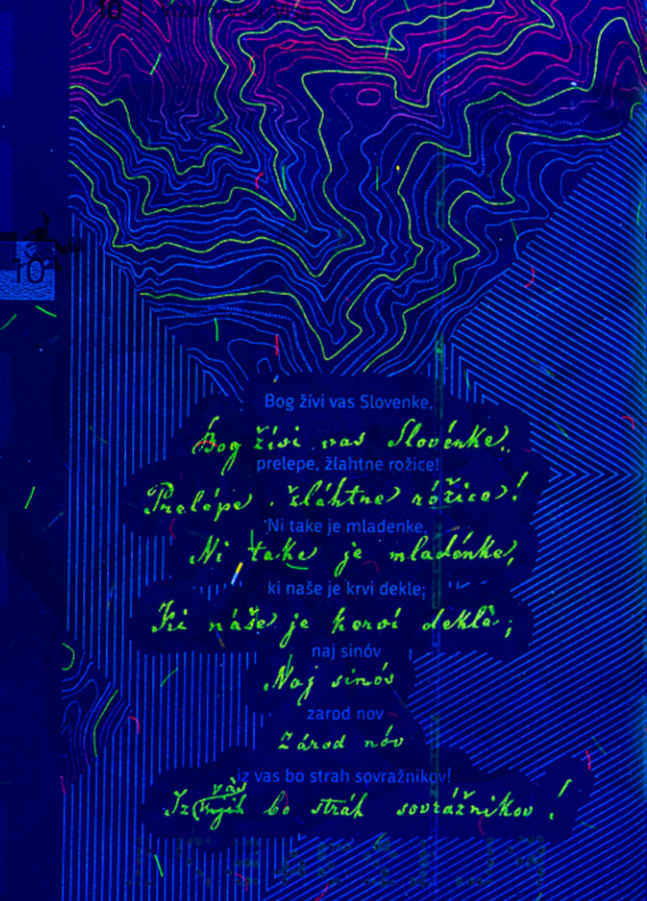 10
10
Bog žívi vas Slovenke,
Bog žívi vas Slovénke,
prelepe, žlahtne rožice!
Prelépe, žláhtne róžice!
Ni take je mladenke,
Ni take je mladénke,
ki naše je krvi dekle;
Ki náše je kervi deklè;
naj sinóv
Naj sinóv
zarod nov
Zárod nóv
iz vas bo strah sovražnikov!
vàs
Iz bo stráh sovrážnikov!